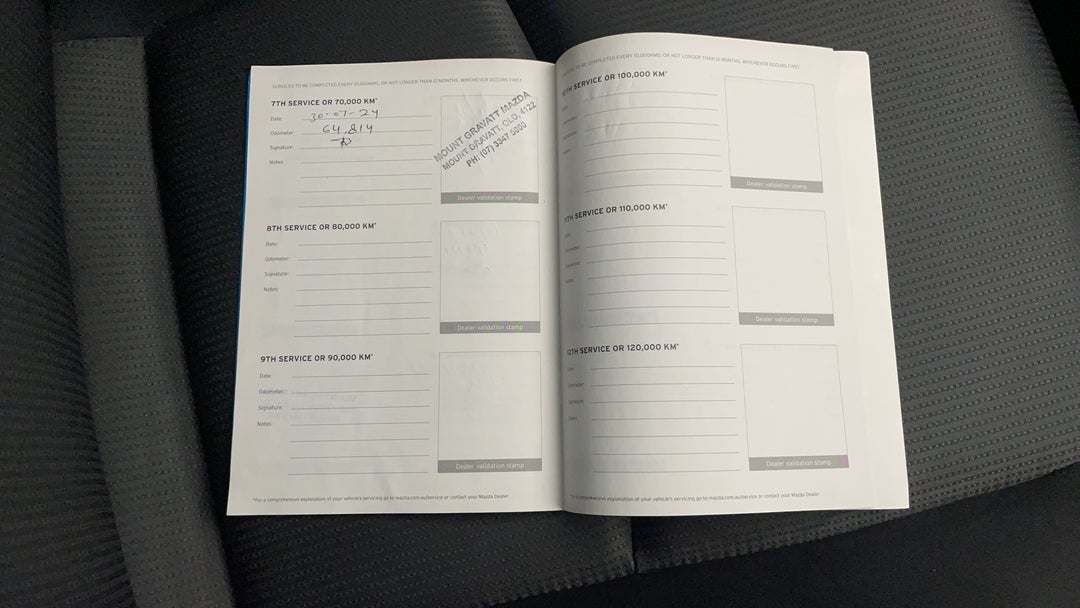 SERVICES TO BE COMPLETED EVERY 10,000KMS, OR NOT LONGER THAN 12 MONTHS, WHICHEVER OCCURS FIRST
7TH SERVICE OR 70,000 KM*
Date: 30-07-24
Odometer: 64,814
Signature:
Notes:
MOUNT GRAVATT MAZDA
MOUNT GRAVATT, QLD, 4122
PH: (07) 3347 5000
Dealer validation stamp
8TH SERVICE OR 80,000 KM*
Date:
Odometer:
Signature:
Notes:
Dealer validation stamp
9TH SERVICE OR 90,000 KM*
Date:
Odometer:
Signature:
Notes:
Dealer validation stamp
*For a comprehensive explanation of your vehicle's servicing go to mazda.com.au/service or contact your Mazda Dealer
SERVICES TO BE COMPLETED EVERY 10,000KMS, OR NOT LONGER THAN 12 MONTHS, WHICHEVER OCCURS FIRST
10TH SERVICE OR 100,000 KM*
Date:
Odometer:
Signature:
Notes:
Dealer validation stamp
11TH SERVICE OR 110,000 KM*
Date:
Odometer:
Signature:
Notes:
Dealer validation stamp
12TH SERVICE OR 120,000 KM*
Date:
Odometer:
Signature:
Notes:
Dealer validation stamp
*For a comprehensive explanation of your vehicle's servicing go to mazda.com.au/service or contact your Mazda Dealer